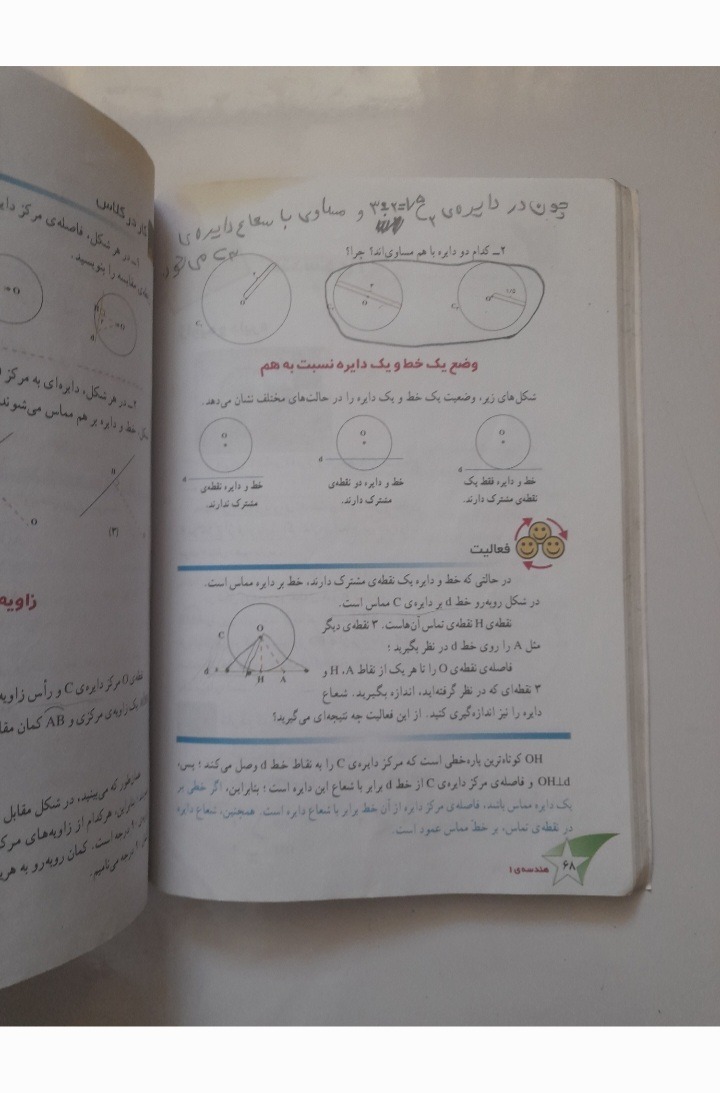 چون در دایره‌ی C₂ ۳÷۲=۱/۵ و مساوی با شعاع دایره‌ی
می شود
۲ــ کدام دو دایره با هم مساوی‌اند؟ چرا؟
۳
O
۱/۵
O
O
وضع یک خط و یک دایره نسبت به هم
شکل‌های زیر، وضعیت یک خط و یک دایره را در حالت‌های مختلف نشان می‌دهد.
O
d
O
d
O
d
خط و دایره فقط یک
نقطه‌ی مشترک دارند.
خط و دایره دو نقطه‌ی
مشترک دارند.
خط و دایره نقطه‌ی
مشترک ندارند.
فعالیت
در حالتی که خط و دایره یک نقطه‌ی مشترک دارند، خط بر دایره مماس است.
در شکل روبه‌رو خط d بر دایره‌ی C مماس است.
نقطه‌ی H نقطه‌ی تماس آن‌هاست. ۳ نقطه‌ی دیگر
مثل A را روی خط d در نظر بگیرید ؛
فاصله‌ی نقطه‌ی O را تا هر یک از نقاط H، A و
۳ نقطه‌ای که در نظر گرفته‌اید، اندازه بگیرید. شعاع
دایره را نیز اندازه‌گیری کنید. از این فعالیت چه نتیجه‌ای می‌گیرید؟
C
O
d
H
A
OH کوتاه‌ترین پاره‌خطی است که مرکز دایره‌ی C را به نقاط خط d وصل می‌کند ؛ پس،
OH⊥d و فاصله‌ی مرکز دایره‌ی C از خط d برابر با شعاع این دایره است ؛ بنابراین، اگر خطی بر
یک دایره مماس باشد، فاصله‌ی مرکز دایره از آن خط برابر با شعاع دایره است. همچنین، شعاع دایره
در نقطه‌ی تماس، بر خط مماس عمود است.
۶۸
هندسه‌ی ۱
کار در کلاس
۱ــ در هر شکل، فاصله‌ی مرکز دایر
مقایسه را بنویسید.
O
O
۲ــ در هر شکل، دایره‌ای به مرکز
خط و دایره بر هم مماس می‌شوند
O
(۳)
زاویه
نقطه‌ی O مرکز دایره‌ی C و رأس زاویه
یک زاویه‌ی مرکزی و AB کمان مقا
همان‌طور که می‌بینید، در شکل مقابل
بنابراین، هرکدام از زاویه‌های مرک
درجه است. کمان روبه‌رو به هر
درجه می‌نامیم.